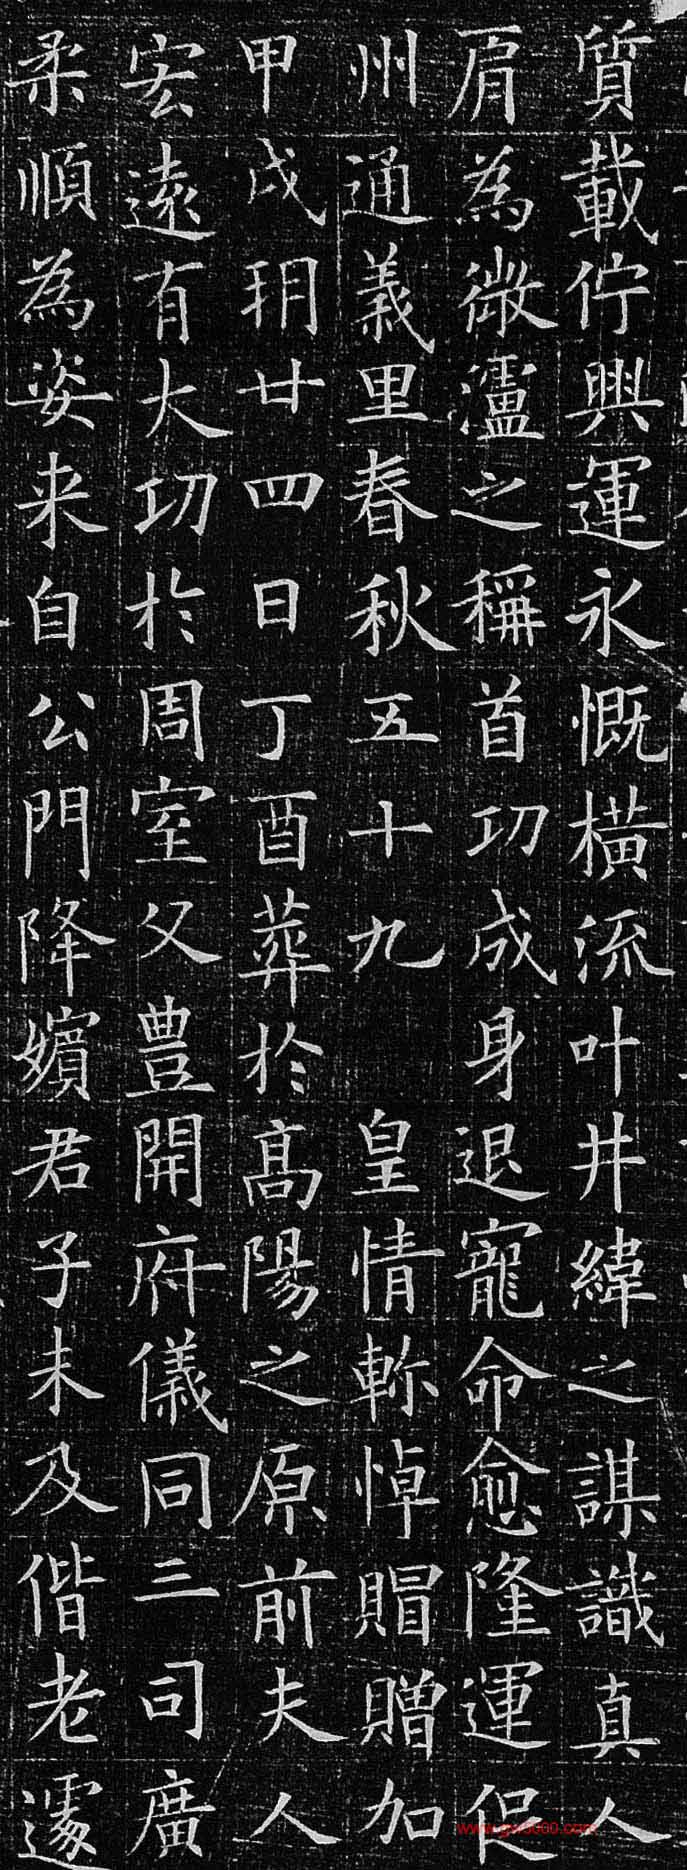 質載佇興運永慨橫流叶井緯之謀識真人
肩為微瀘之稱首功成身退寵命愈隆運促
州通義里春秋五十九 皇情軫悼賵贈加
甲戌朔廿四日丁酉葬於髙陽之原前夫人
宏遠有大功於周室父豊開府儀同三司廣
柔順為姿来自公門降嬪君子未及偕老遽